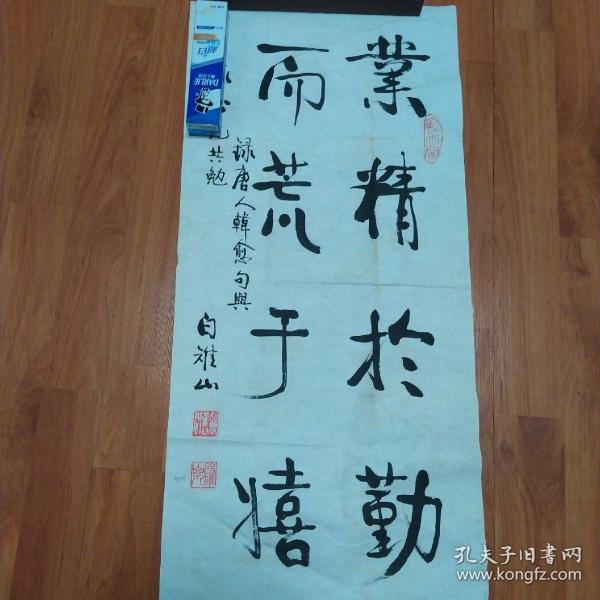 業精於勤
而荒于嬉
録唐人韓愈句與
共勉
白雅山
DARLIE
孔夫子旧書网
www.kongfz.com